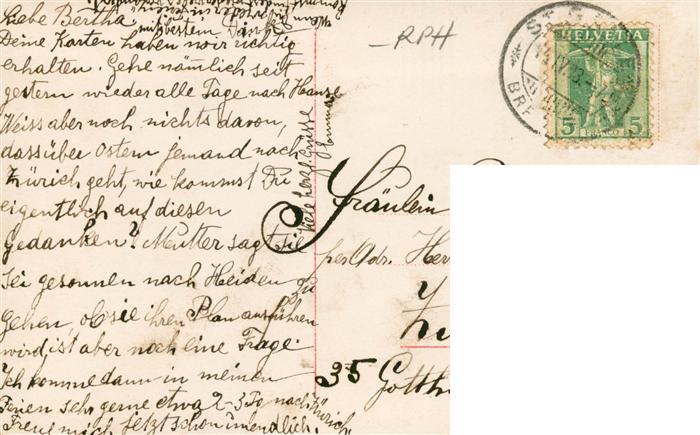 Liebe Bertha
mit bestem Dank
Deine Karten haben wir richtig
erhalten. Gehe nämlich seit
gestern wieder alle Tage nach Hause
Weiss aber noch nichts davon,
dass über Ostern jemand nach
Zürich geht, wie kommst Du
eigentlich auf diesen
Gedanken? Mutter sagt sie
sei gesonnen nach Heiden zu
gehen, ob sie ihren Plan ausführen
wird, ist aber noch eine Frage.
Ich komme dann in meinen
Ferien sehr gerne etwa 2-3 Tg nach Zürich
Freue mich jetzt schon unendlich.
Viele herzl. Grüsse
RPH
HELVETIA
5 FRANCO 5
ST.
BR
Fräulein
per Adr. Her
35 Gotth